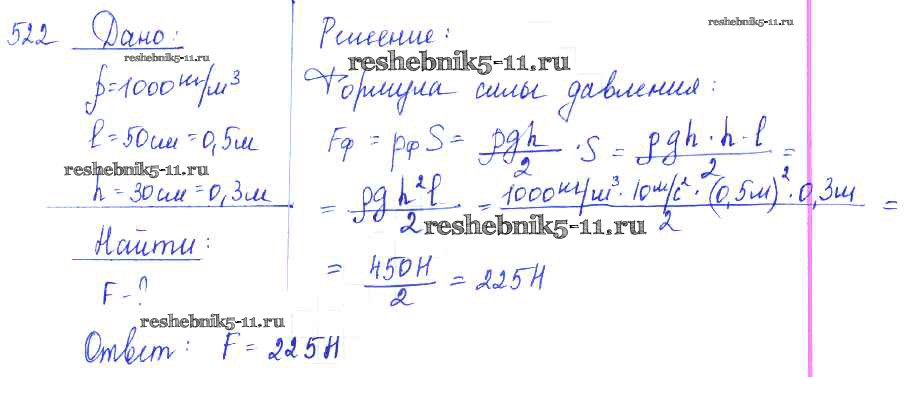 522 Дано:
reshebnik5-11.ru
ρ=1000кг/м³
l=50см=0,5м
reshebnik5-11.ru
h=30см=0,3м
Найти:
F-?
reshebnik5-11.ru
Ответ: F=225Н
reshebnik5-11.ru
Решение:
reshebnik5-11.ru
Формула силы давления:
Fф = pф S = ρgh/2 · S = ρgh·h·l/2 =
= ρgh²l/2 = 1000кг/м³·10м/с²·(0,5м)²·0,3м/2 =
reshebnik5-11.ru
= 450Н/2 = 225Н